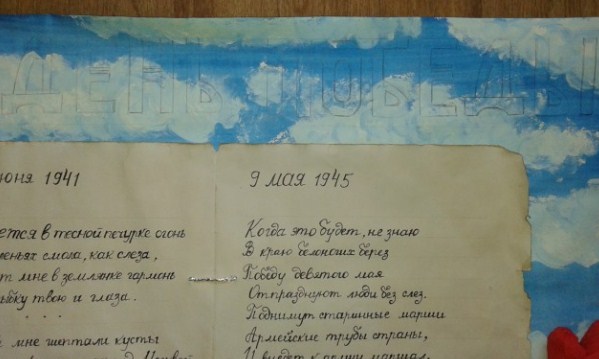 ДЕНЬ ПОБЕДЫ
юня 1941
ется в тесной печурке огонь
еньях смола, как слеза,
т мне в землянке гармонь
ыбку твою и глаза.
. . . .
мне шептали кусты
9 мая 1945
Когда это будет, не знаю
В краю белоногих берез
Победу девятого мая
Отпразднуют люди без слез.
Поднимут старинные марши
Армейские трубы страны,
И выедет к армии маршал